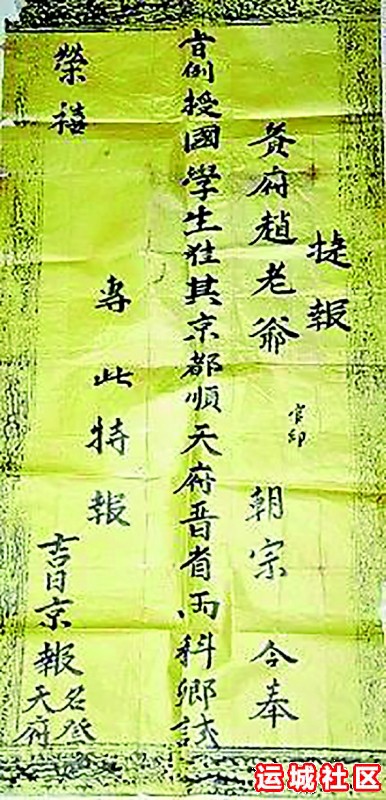 捷報
貴府趙老爺官印朝宗今奉
旨例授國學生准其京都順天府晉省兩科鄉試
榮禧
專此特報
吉日京報
名登
天府
运城社区